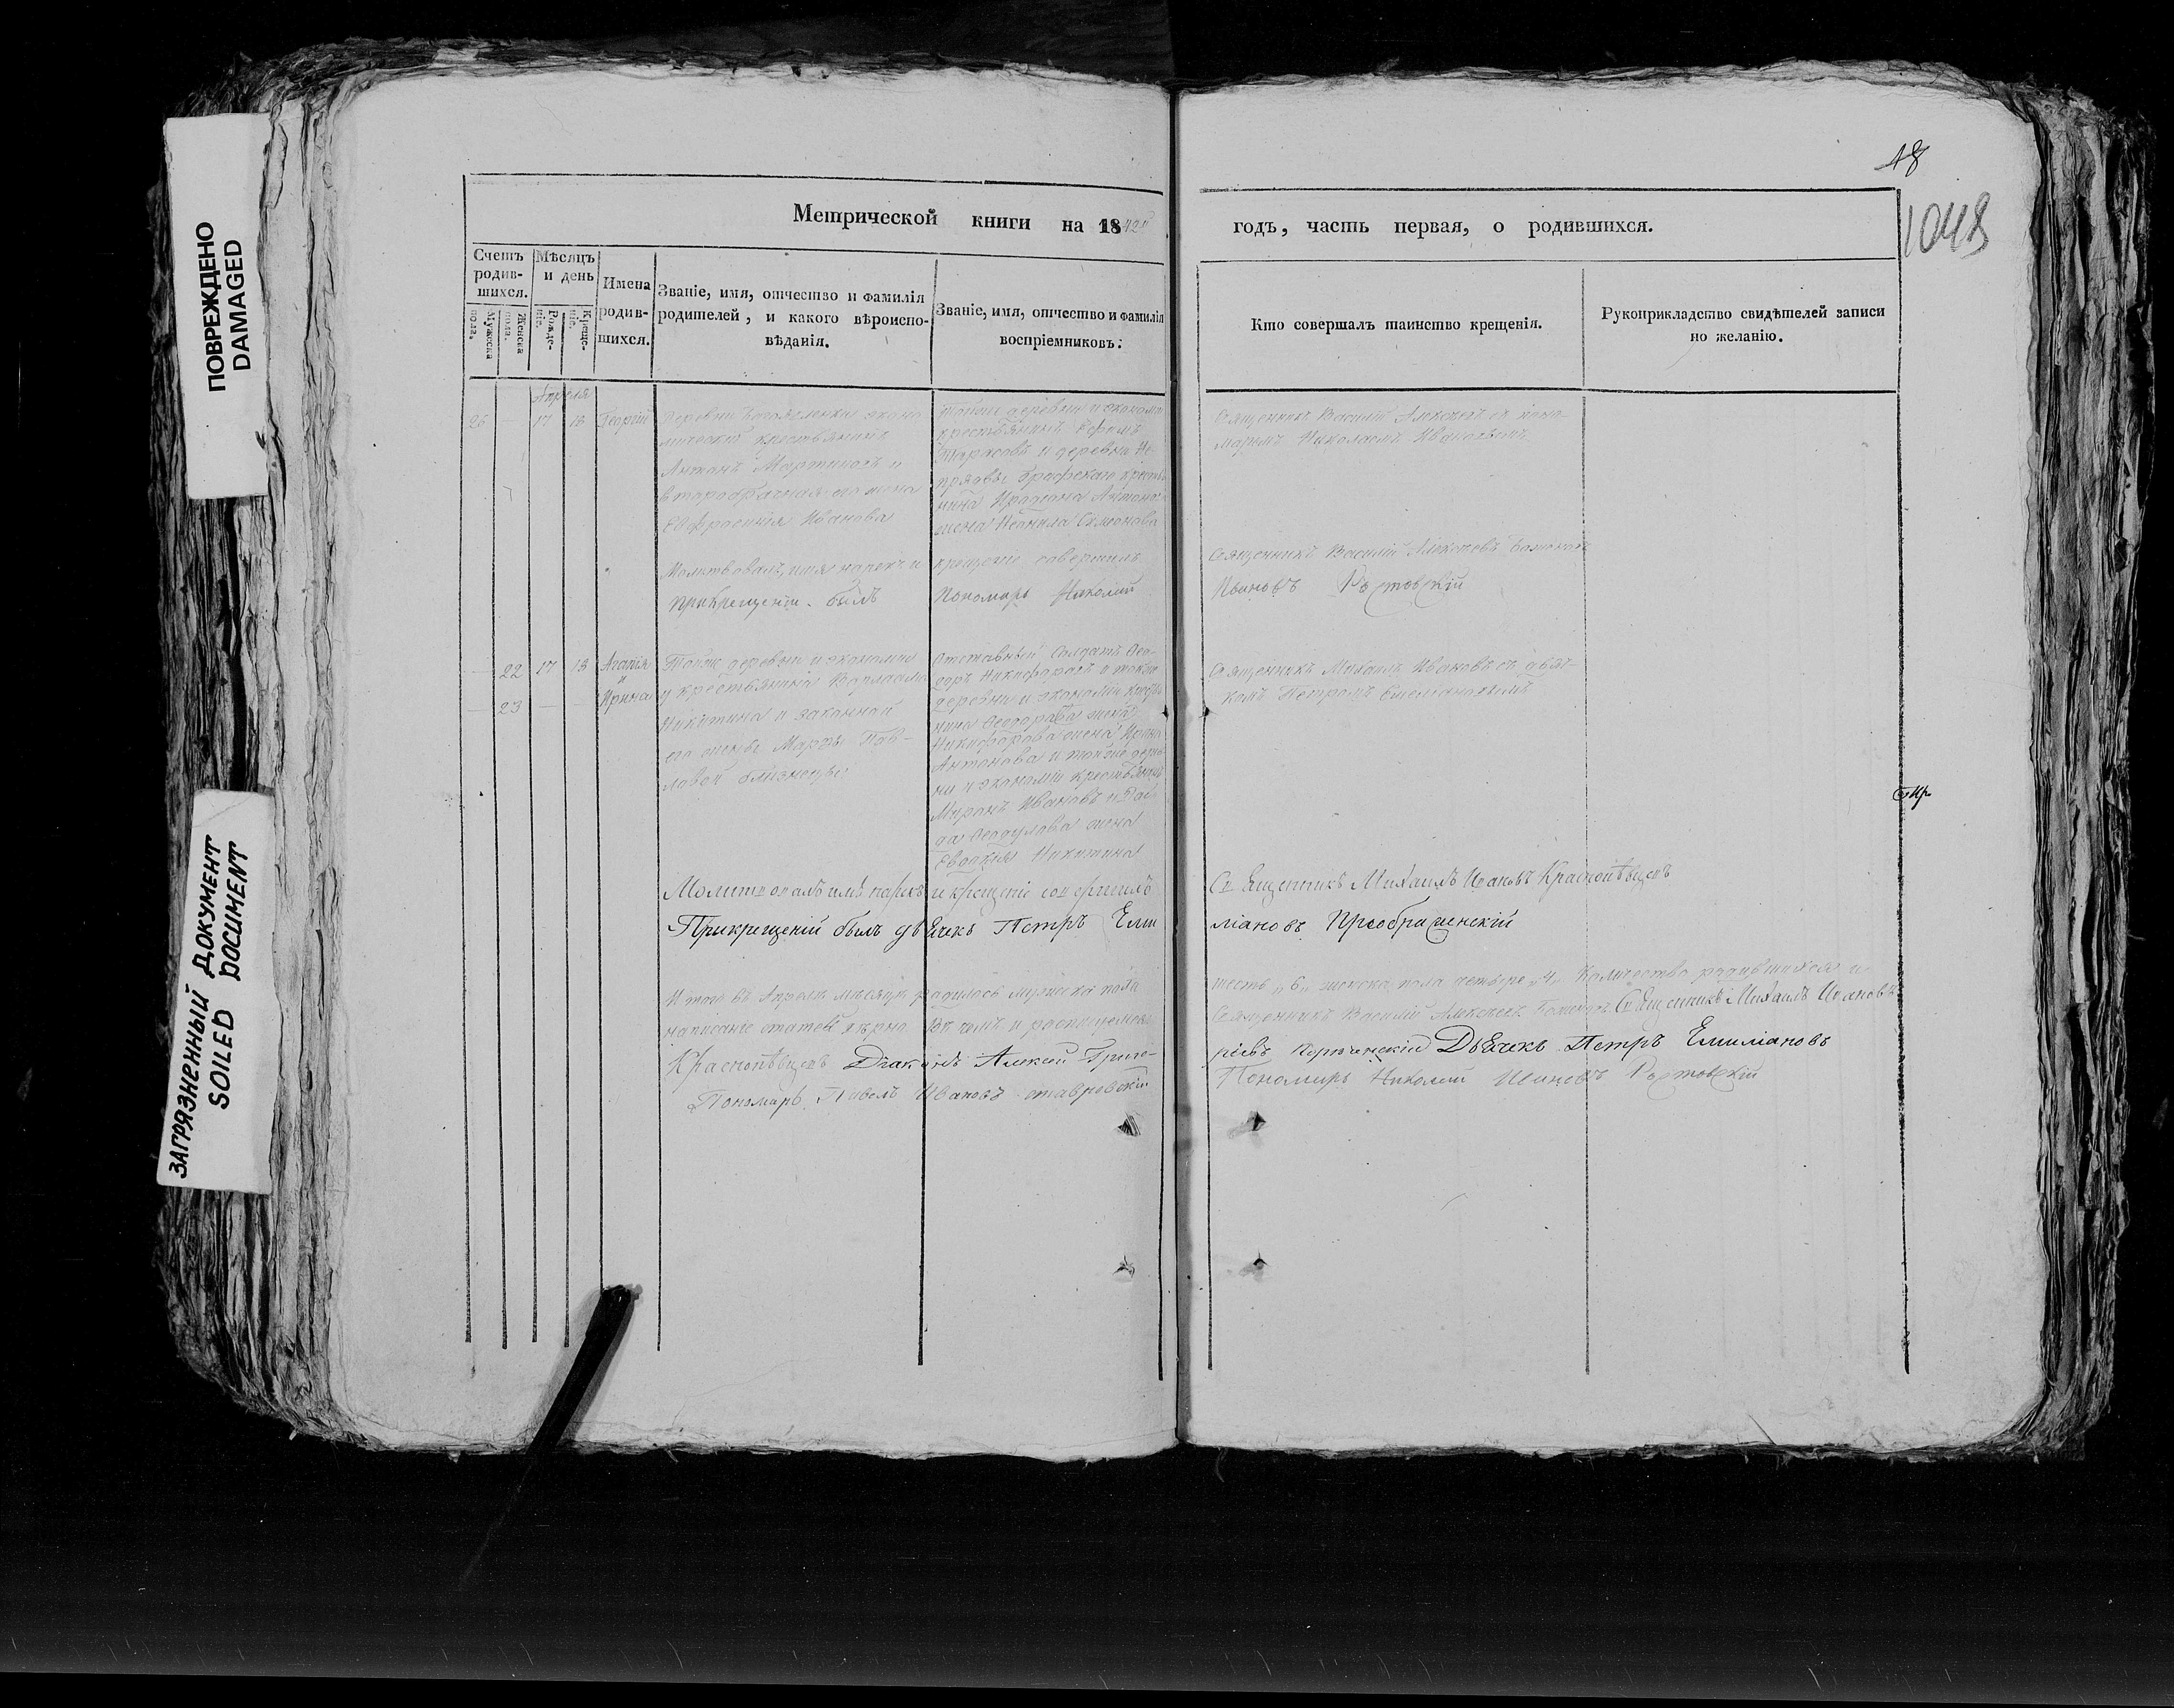 ПОВРЕЖДЕНО
DAMAGED
ЗАГРЯЗНЕННЫЙ ДОКУМЕНТ
SOILED DOCUMENT
18
1048
Метрической книги на 1842й
годъ, часть первая, о родившихся.
Счетъ родив-шихся.
Мужеска пола.
Женска пола.
Мѣсяцъ и день
Рожде-ніе.
Креще-ніе.
Имена родив-шихся.
Званіе, имя, отчество и фамилія
родителей, и какого вѣроиспо-
вѣданія.
Званіе, имя, отчество и фамилія
воспріемниковъ.
Кто совершалъ таинство крещенія.
Рукоприкладство свидѣтелей записи
по желанію.
Апреля
26 — 17 18 Георгій
Деревни эконо
мическій крестьянинъ
Антонъ Мартиновъ и
второбрачная его жена
Евфросинія Иванова
тойже деревни и экономіи
крестьянинъ Ефимъ
Тарасовъ и деревни Не-
прядвы графскаго крестья
нина Антонова
жена Неонила Симонова
Священникъ Василій Алексеевъ съ поно-
маремъ Николаемъ Ивановымъ
Молитвовалъ, имя нарекъ и крещеніе совершилъ
Священникъ Василій Алексеевъ
При крещеніи былъ Пономарь Николай
Ивановъ Ростовскій
— 22 17 18 Агапія
и
— 23 — — Ирина
Тойже деревни и экономіи
у крестьянина Варлаама
Никитина и законной
его жены Марфы Пав-
ловой близнецы
Отставный Солдатъ Ѳео-
доръ Никифоровъ и тойже
деревни и экономіи крестья
нина Ѳеодора
Никифорова жена Ирина
Антонова и тойже дерев
ни и экономіи крестьянинъ
Миронъ Ивановъ и
жена
Евдокія Никитина
Священникъ Михаилъ Ивановъ съ дьяч-
комъ Петромъ Емеліановымъ
Молитвовалъ имя нарекъ и крещеніе совершилъ
Священникъ Михаилъ Ивановъ Краснопѣвцевъ
При крещеній былъ дьячекъ Петръ Еми
ліановъ Преображенскій
Итого въ Апреле месяце родилось мужеска пола
шесть „6„ женска пола четыре „4„ Количество родившихся и
написаніе статей верно. Въ чемъ и росписуемся
Священникъ Василій Алексеевъ Священникъ Михаилъ Ивановъ
Краснопѣвцевъ Діаконъ Алексей Григо-
ріевъ Дьячекъ Петръ Емиліановъ
Пономарь Павелъ Ивановъ Ставровскій
Пономарь Николай Ивановъ Ростовскій